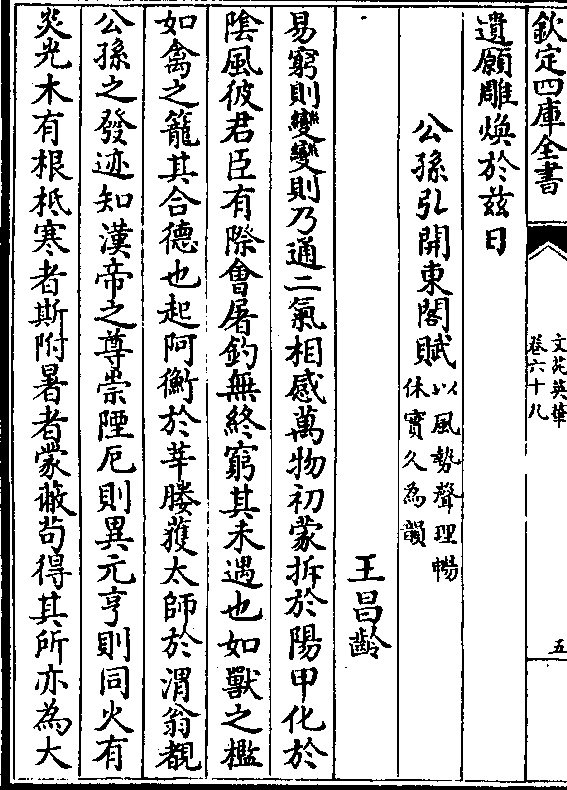 欽定四庫全書
文苑英華
卷六十九
五
遺願雕煥於兹日
公孫引開東閣賦
以風勢聲理暢
休實久為韻
王昌齡
易窮則變變則乃通二氣相感萬物初蒙拆於陽甲化於
陰風彼君臣有際會屠釣無終窮其未遇也如獸之檻
如禽之籠其合德也起阿衡於莘媵獲太師於渭翁覩
公孫之發迹知漢帝之尊崇陻厄則異元亨則同火有
炎光木有根柢寒者斯附暑者蒙蔽茍得其所亦為大